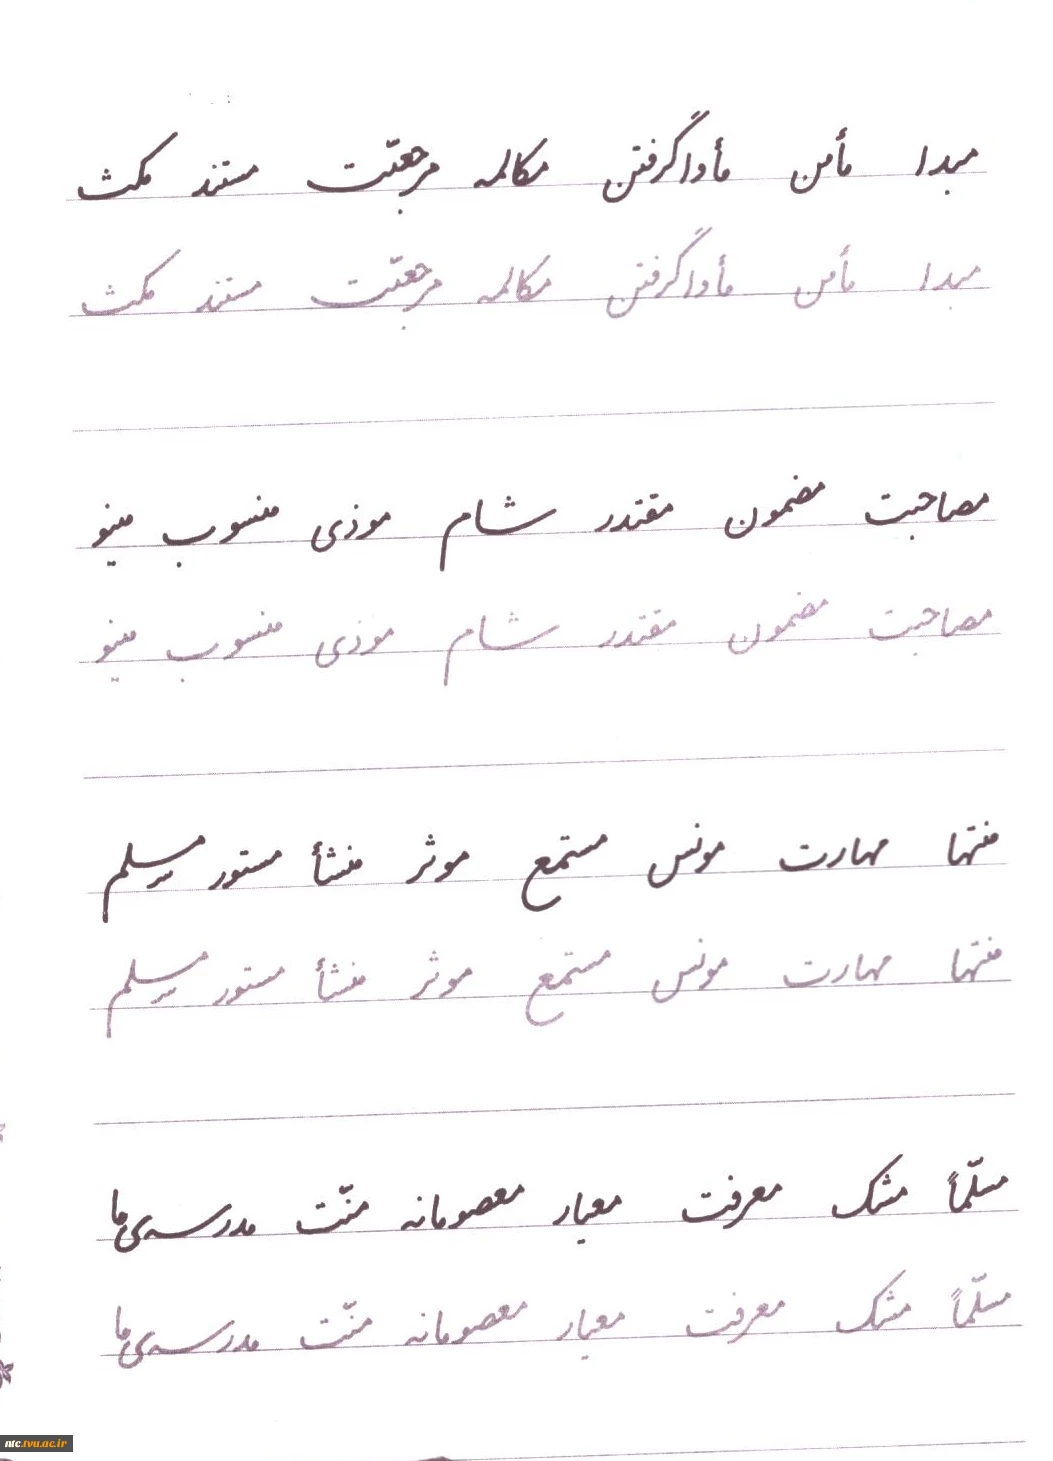 مبدا مأمن مأوا گرفتن مکالمه مرجعیّت مستند مکث
مبدا مأمن مأوا گرفتن مکالمه مرجعیّت مستند مکث
مصاحبت مضمون مقتدر مشام موذی منسوب مینو
مصاحبت مضمون مقتدر مشام موذی منسوب مینو
منتها مهارت مونس مستمع موثر منشأ مستور میسلم
منتها مهارت مونس مستمع موثر منشأ مستور میسلم
مسلّماً مشک معرفت معیار معصومانه منّت مدرسه‌ی ما
مسلّماً مشک معرفت معیار معصومانه منّت مدرسه‌ی ما
ntc.tvu.ac.ir